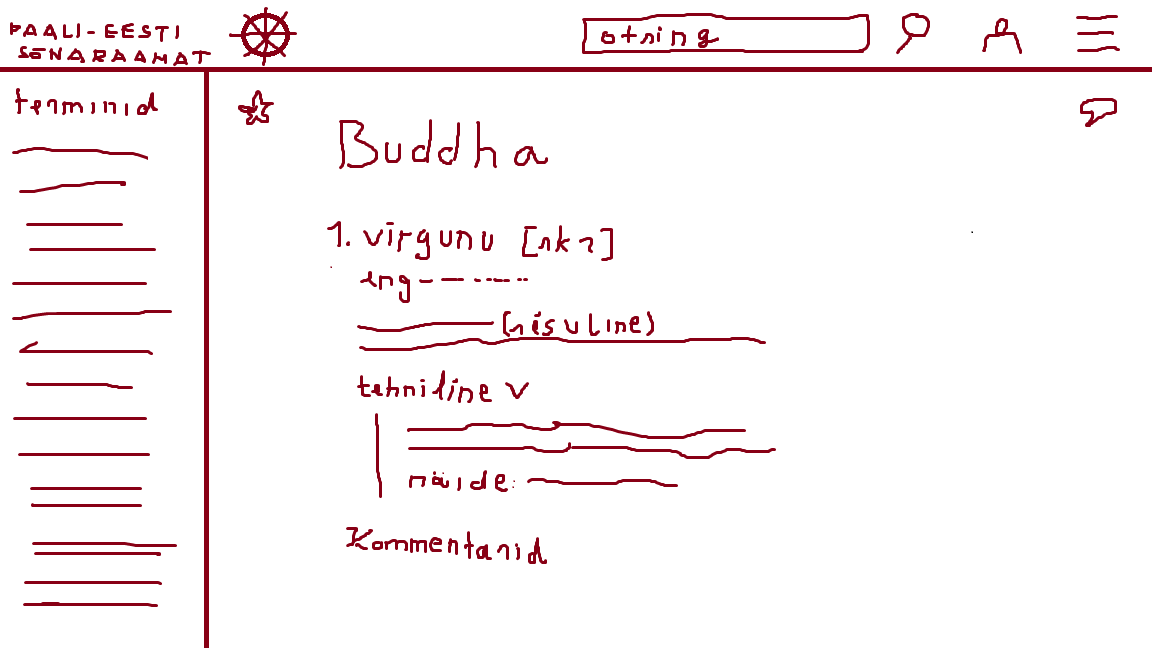 PAALI-EESTI
SÕNARAAMAT
otsing
terminid
Buddha
1. virgunu [sk1]
eng
(sisuline)
tehniline v
näide:
Kommentarid